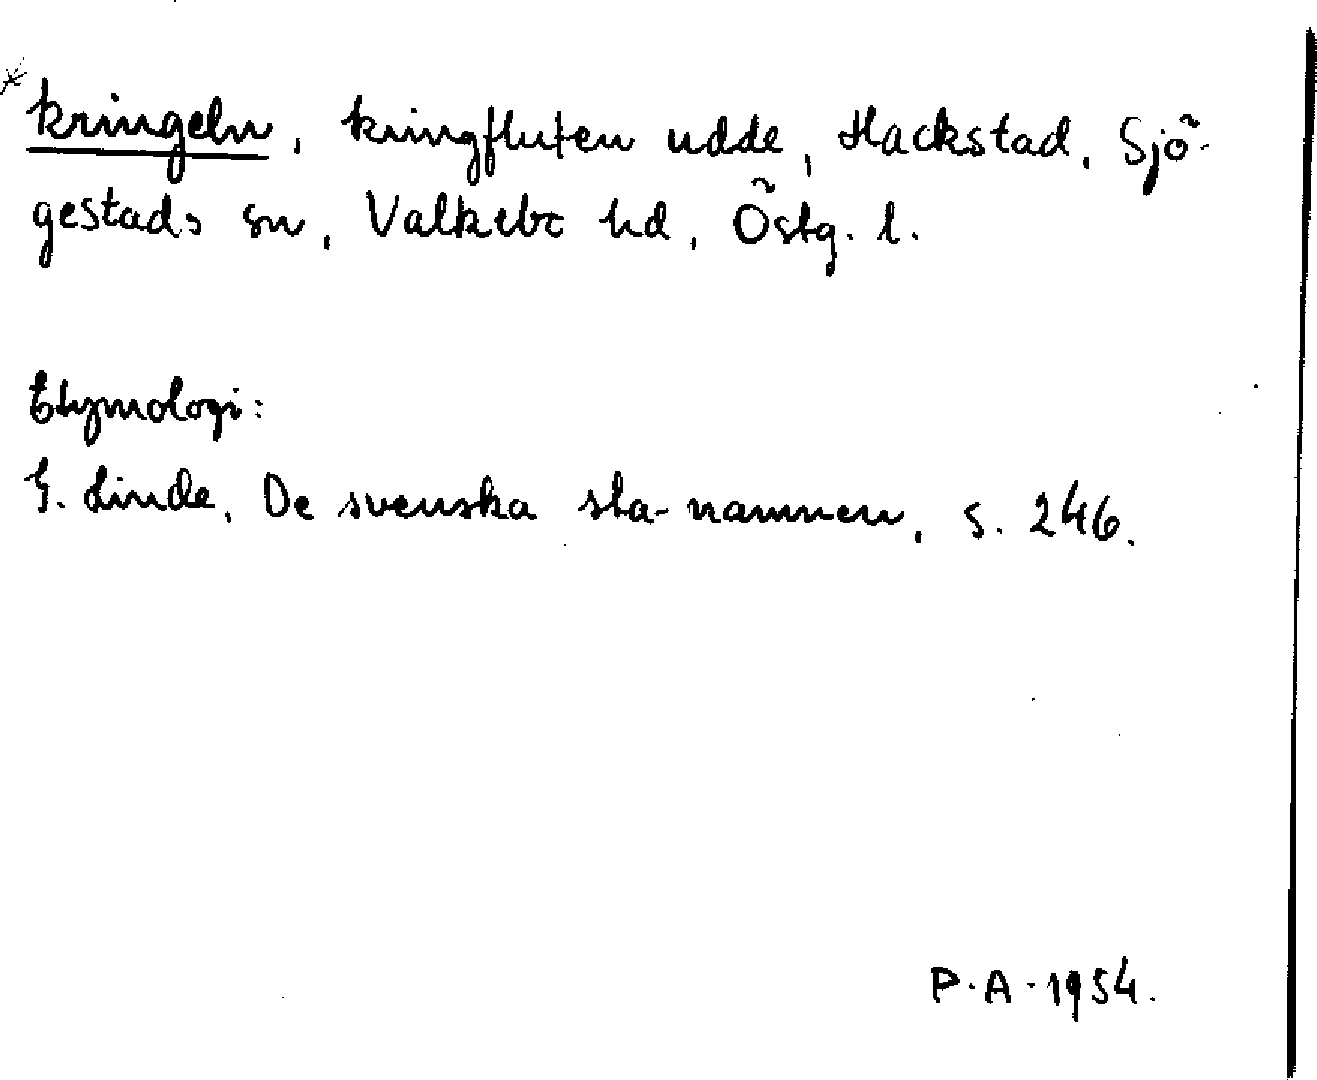 *kringeln, kringfluten udde, Hackstad, Sjö-
gestads sn, Valkebo hd, Östg. l.
Etymologi:
G. Linde, De svenska sta-namnen, s. 246.
P.A. 1954.